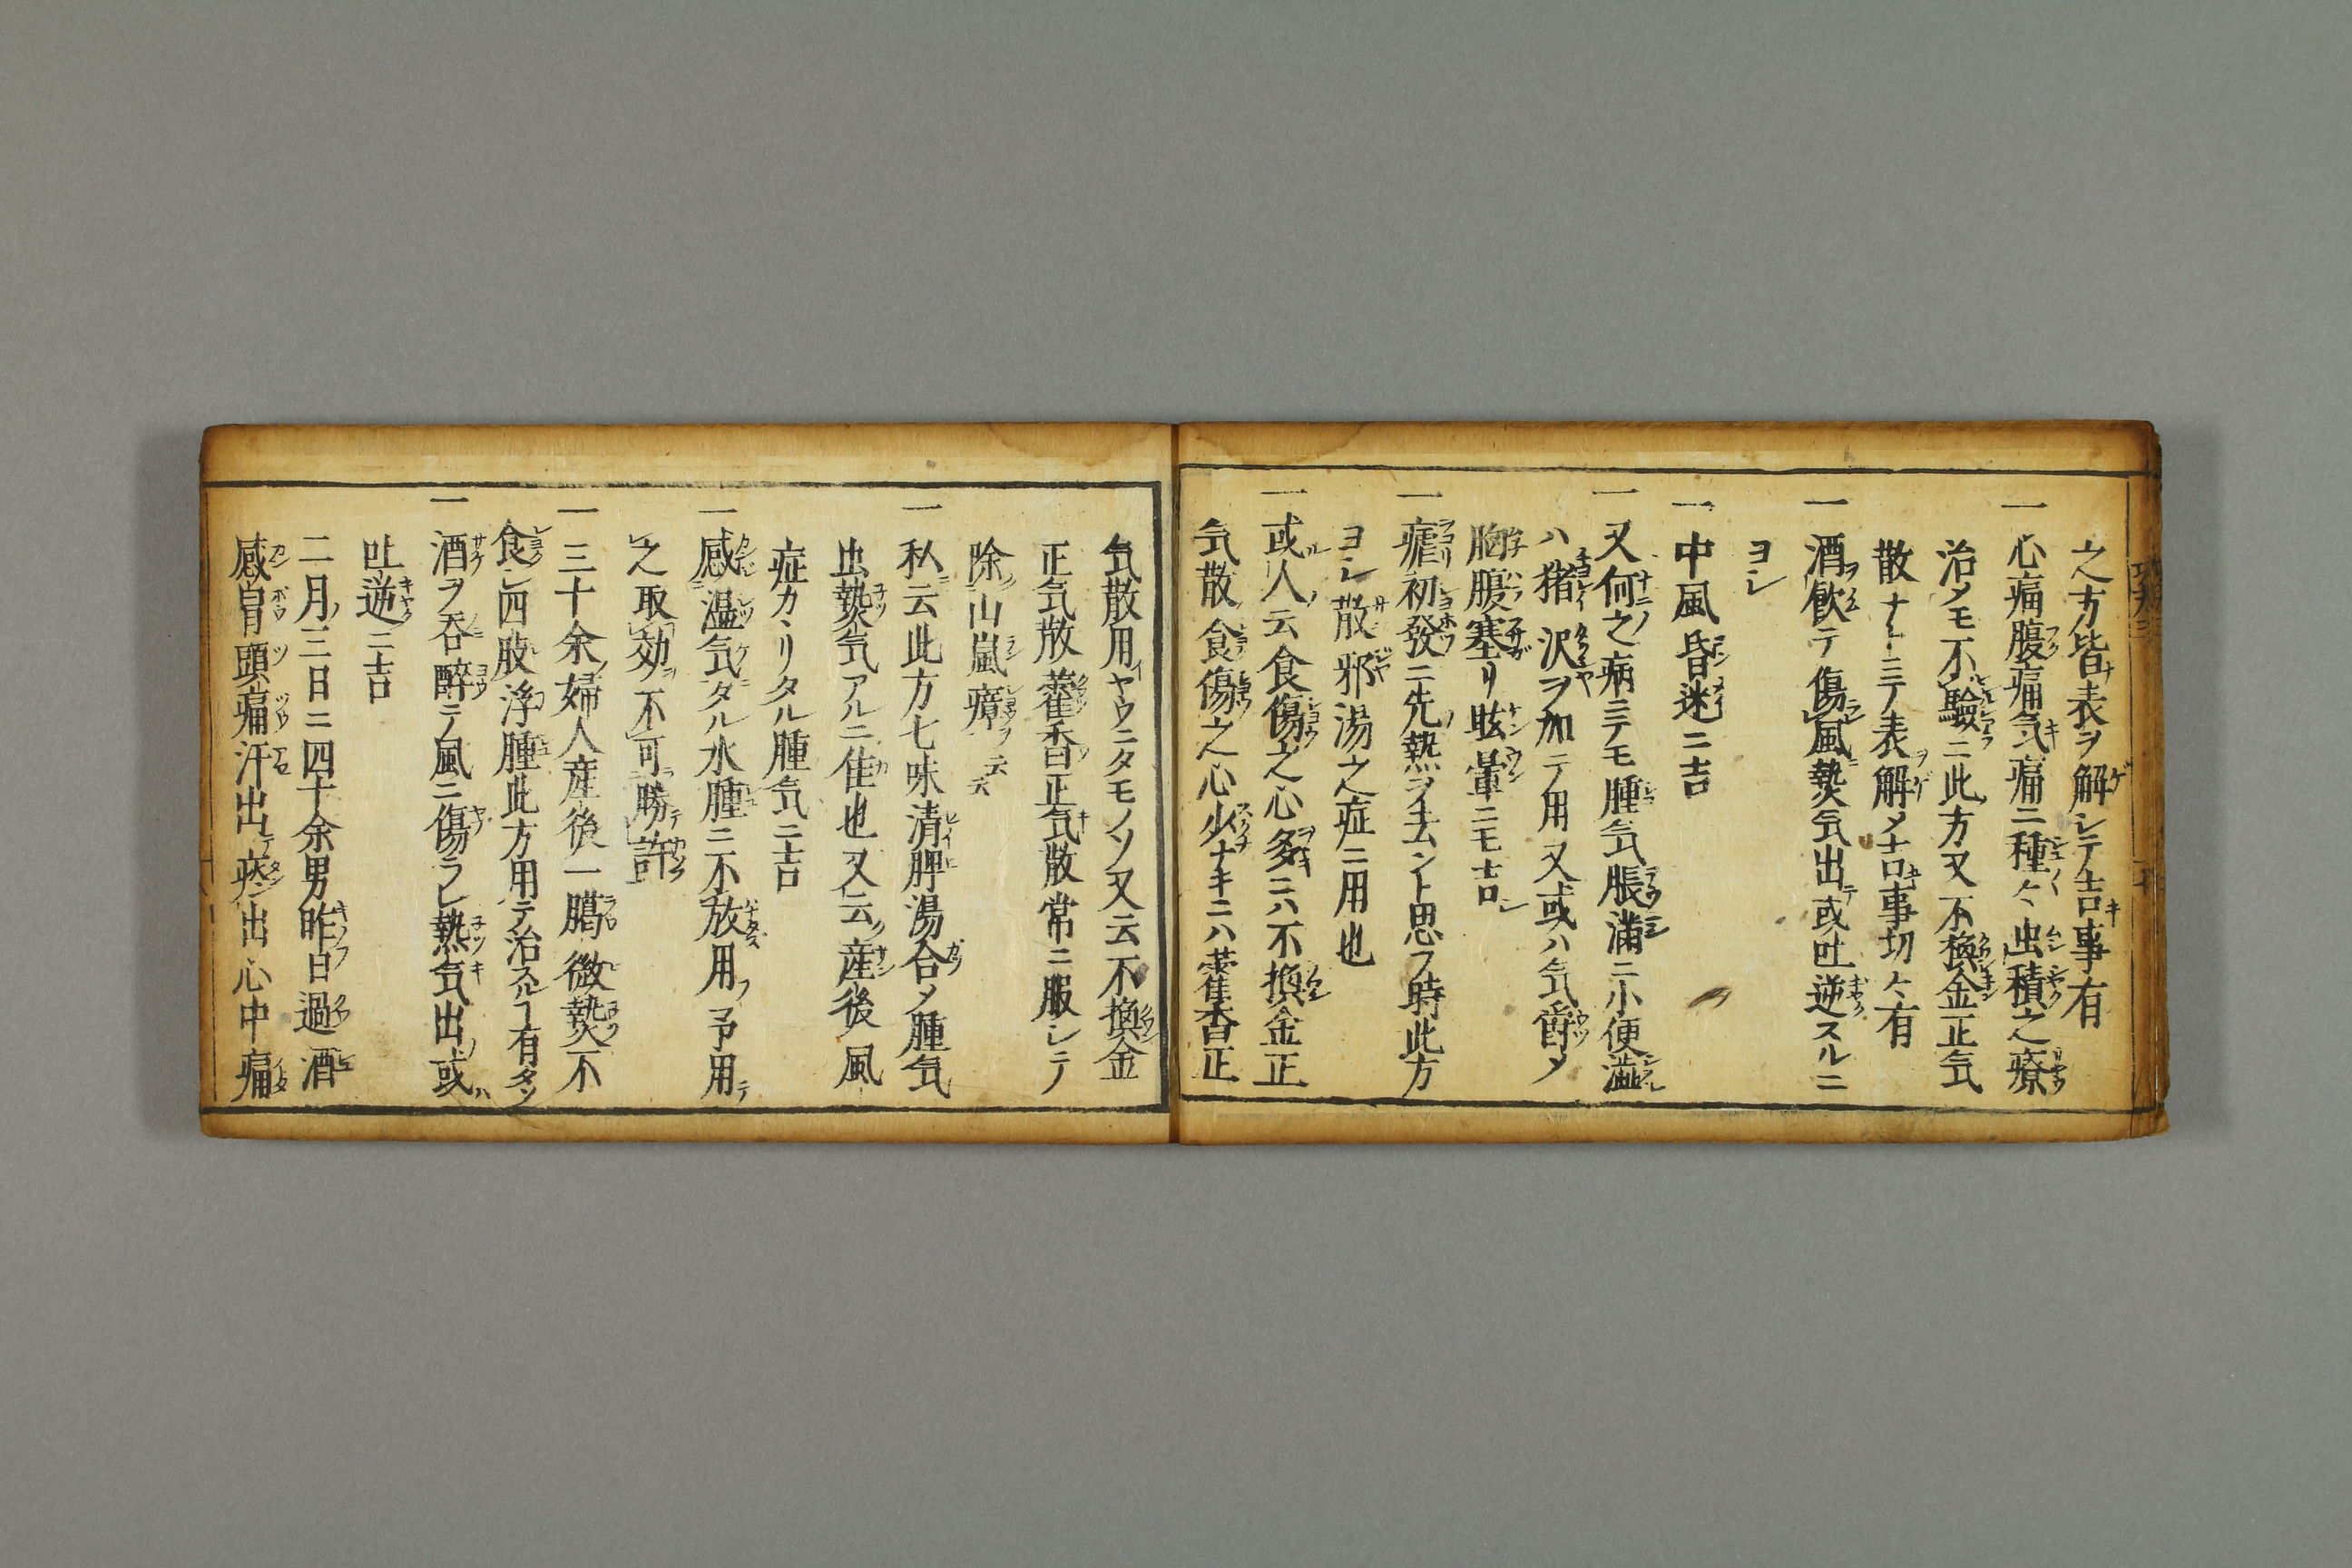 之方皆表ヲ解シテ吉事有
一心痛腹痛気痛ニ種々虫積之療
治メモ不驗ニ此方又不換金正気
散ナトニテ表解メ吉事切々有
一酒飲テ傷風熱気出テ或吐逆スルニ
ヨシ
一中風昏迷ニ吉
一又何之病ニテモ腫気脹滿ニ小便澁
ハ猪沢ヲ加テ用又或ハ気欝メ
胸腹塞リ眩暈ニモ吉シ
一瘧初發ニ先熱ヲ去ント思フ時此方
ヨシ散邪湯之症ニ用也
一或人ノ云食傷之心多ニハ不換金正
気散食傷之心少ナキニハ藿香正
気散用ヤウニタモノソ又云不換金
正気散藿香正気散常ニ服シテ
除山嵐瘴ヲ云々
一私云此方七味清脾湯合メ腫気
虫熱気アルニ佳也又云産後風
症カヽリタル腫気ニ吉
一感温気タル水腫ニ不放用フ予用テ
之取効ヲ不可勝計
一三十余ノ婦人産後一臈微熱不
食シ四肢浮腫此方用テ治スルヿ有タソ
一酒ヲ呑醉テ風ニ傷ラレ熱気出或ハ
吐逆ニ吉
二月ノ三日ニ四十余男昨日過酒
感冒頭痛汗出テ痰出心中痛